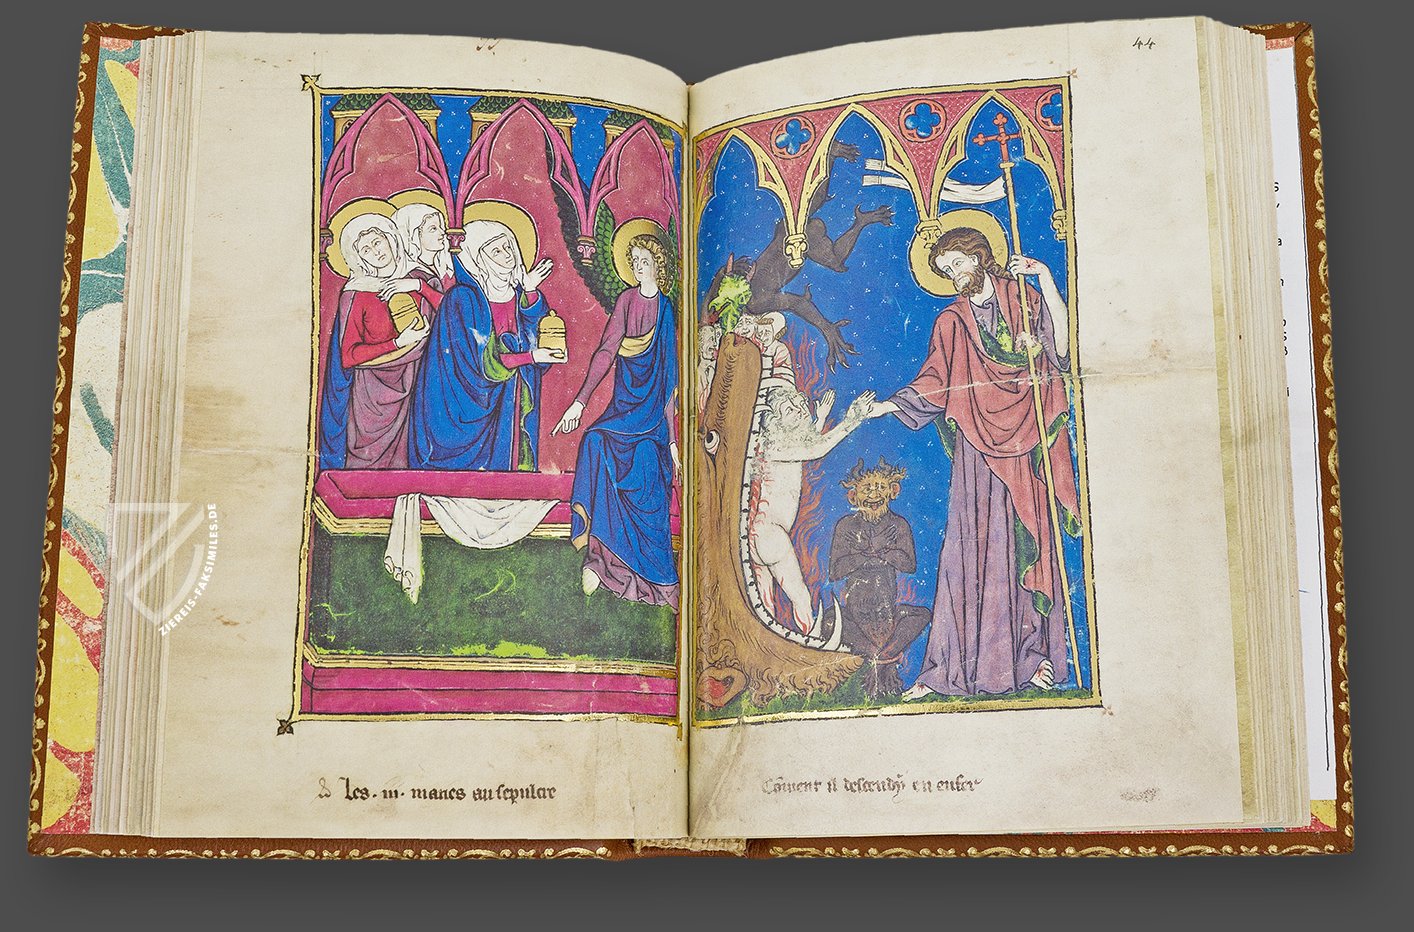 44
Les · iii · maries au sepulcre
Coment il descendi en enfer
ZIEREIS-FAKSIMILES.DE